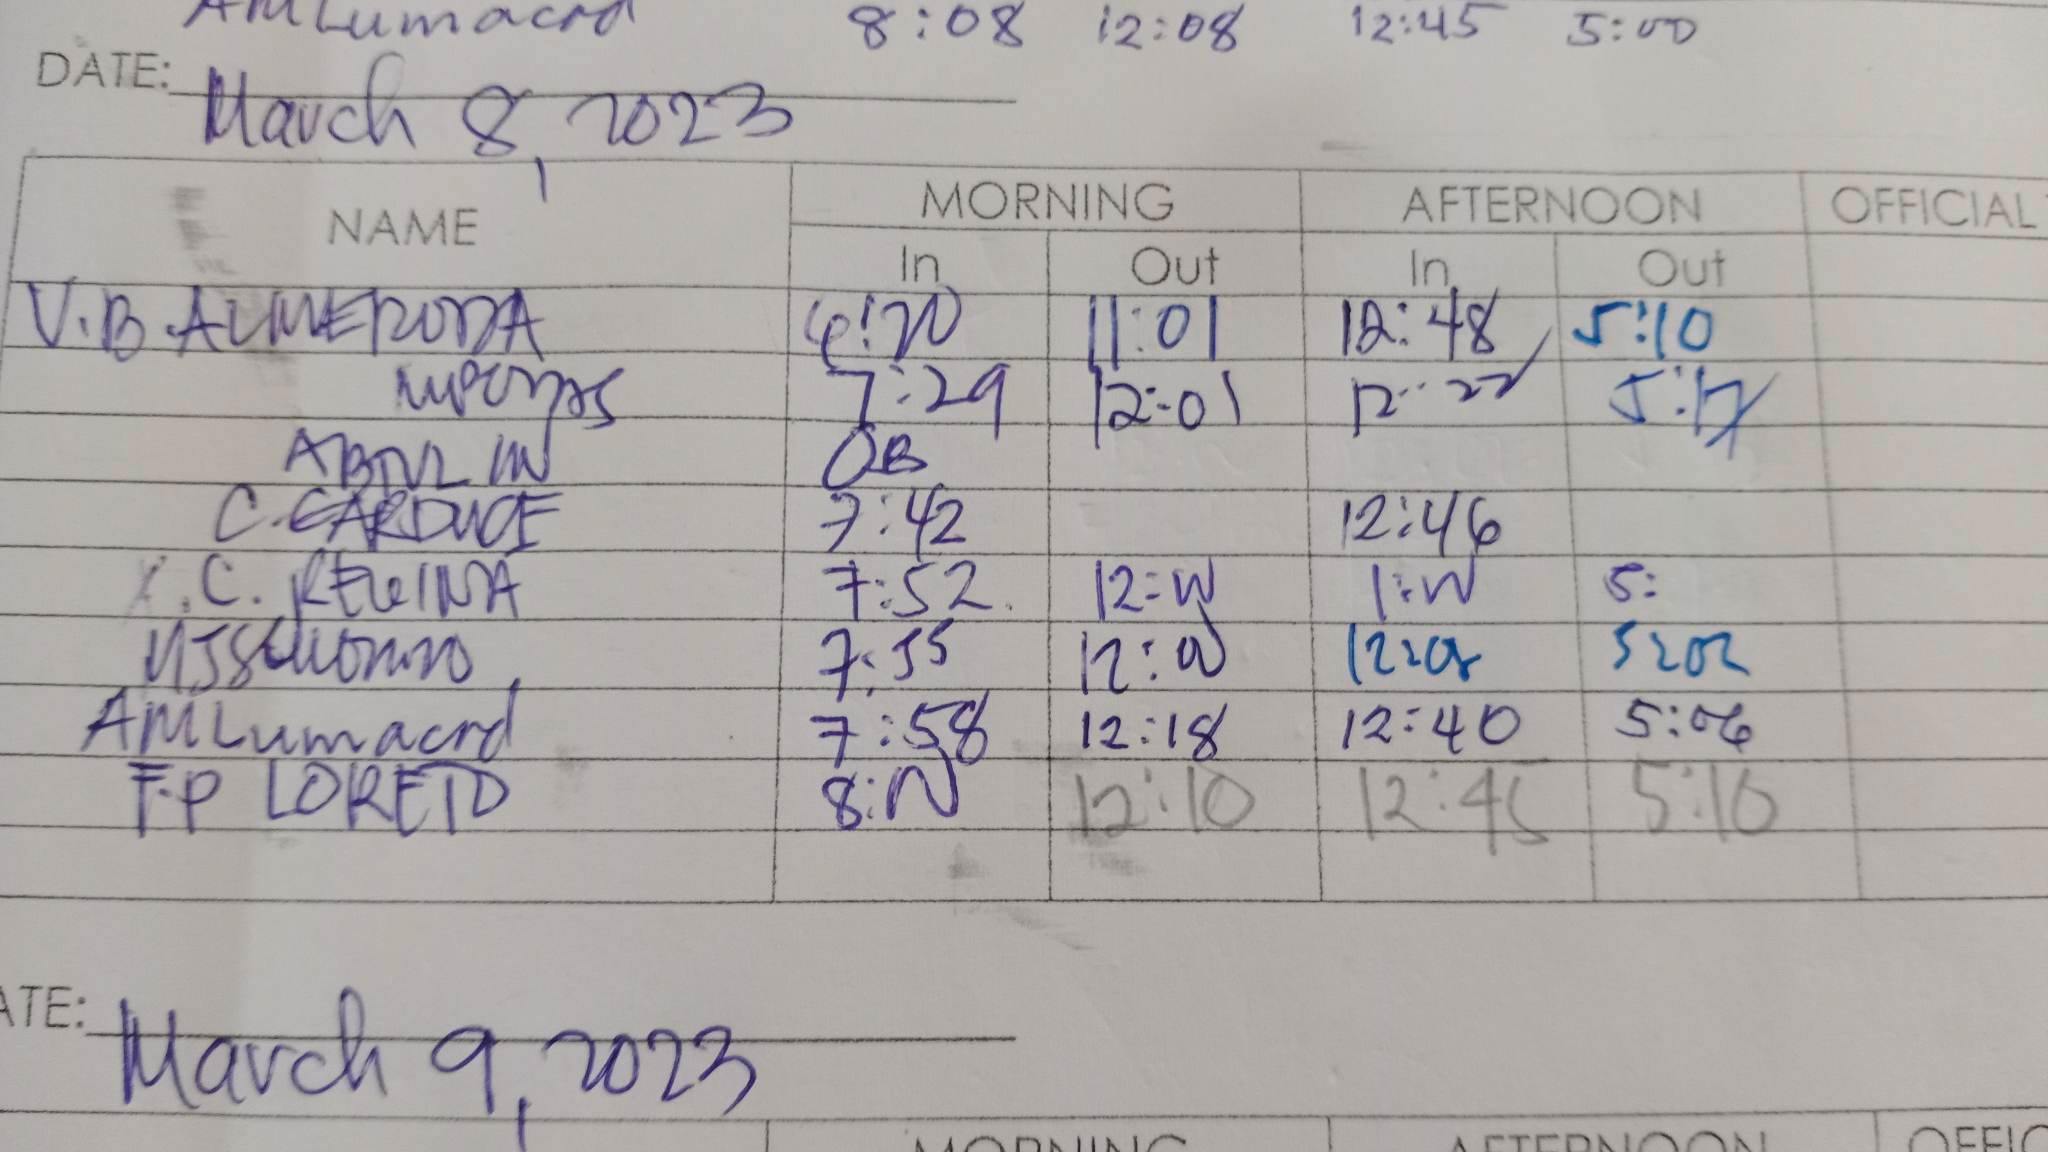 AMLumacad 8:08 12:08 12:45 5:00
DATE: March 8, 2023
NAME MORNING AFTERNOON OFFICIAL
In Out In Out
V.B. ALMERODA 6:20 11:01 12:48 5:10
7:29 12:01 12:22 5:17
OB
C. 7:42 12:46
C. REGINA 7:52 12:00 1:00 5:
7:55 12:00 5:02
AMLumacad 7:58 12:18 12:40 5:06
F.P LORETO 8:00 12:10 12:45 5:10
ATE: March 9, 2023
MORNING AFTERNOON OFFIC